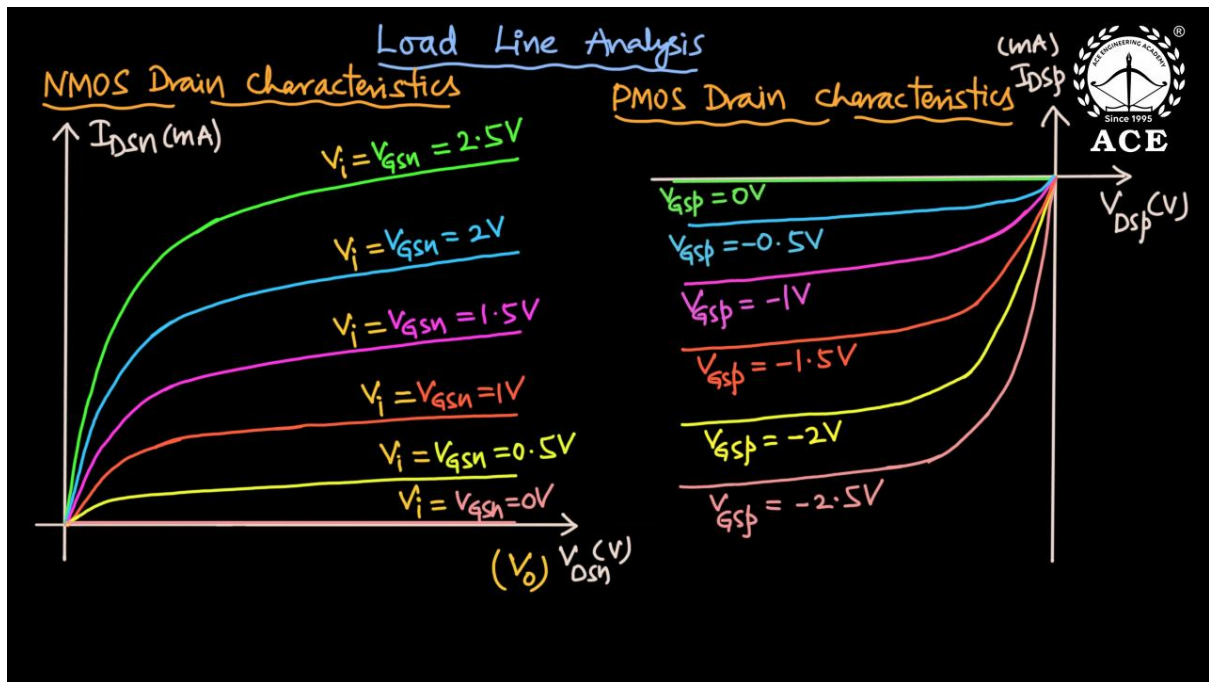 Load Line Analysis
NMOS Drain Characteristics
I_DSn (mA)
V_i = V_GSn = 2.5V
V_i = V_GSn = 2V
V_i = V_GSn = 1.5V
V_i = V_GSn = 1V
V_i = V_GSn = 0.5V
V_i = V_GSn = 0V
(V_0) V_DSn (V)
PMOS Drain characteristics
(mA)
I_DSp
V_DSp (V)
V_GSp = 0V
V_GSp = -0.5V
V_GSp = -1V
V_GSp = -1.5V
V_GSp = -2V
V_GSp = -2.5V
ACE ENGINEERING ACADEMY
®
Since 1995
ACE